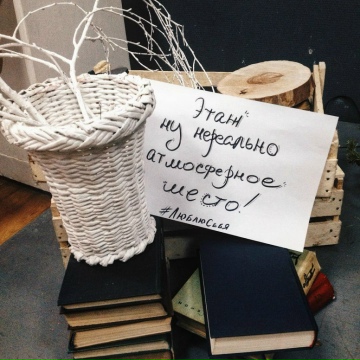 "Этаж"
ну нереально
атмосферное
место!
#ЛюблюСебя